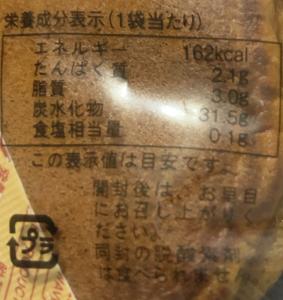 栄養成分表示(1袋当たり)
エネルギー 162kcal
たんぱく質 2.1g
脂質 3.0g
炭水化物 31.5g
食塩相当量 0.1g
この表示値は目安です。
開封後は、お早目
にお召し上がりく
ださい。
同封の脱酸素剤
は食べられません
プラ